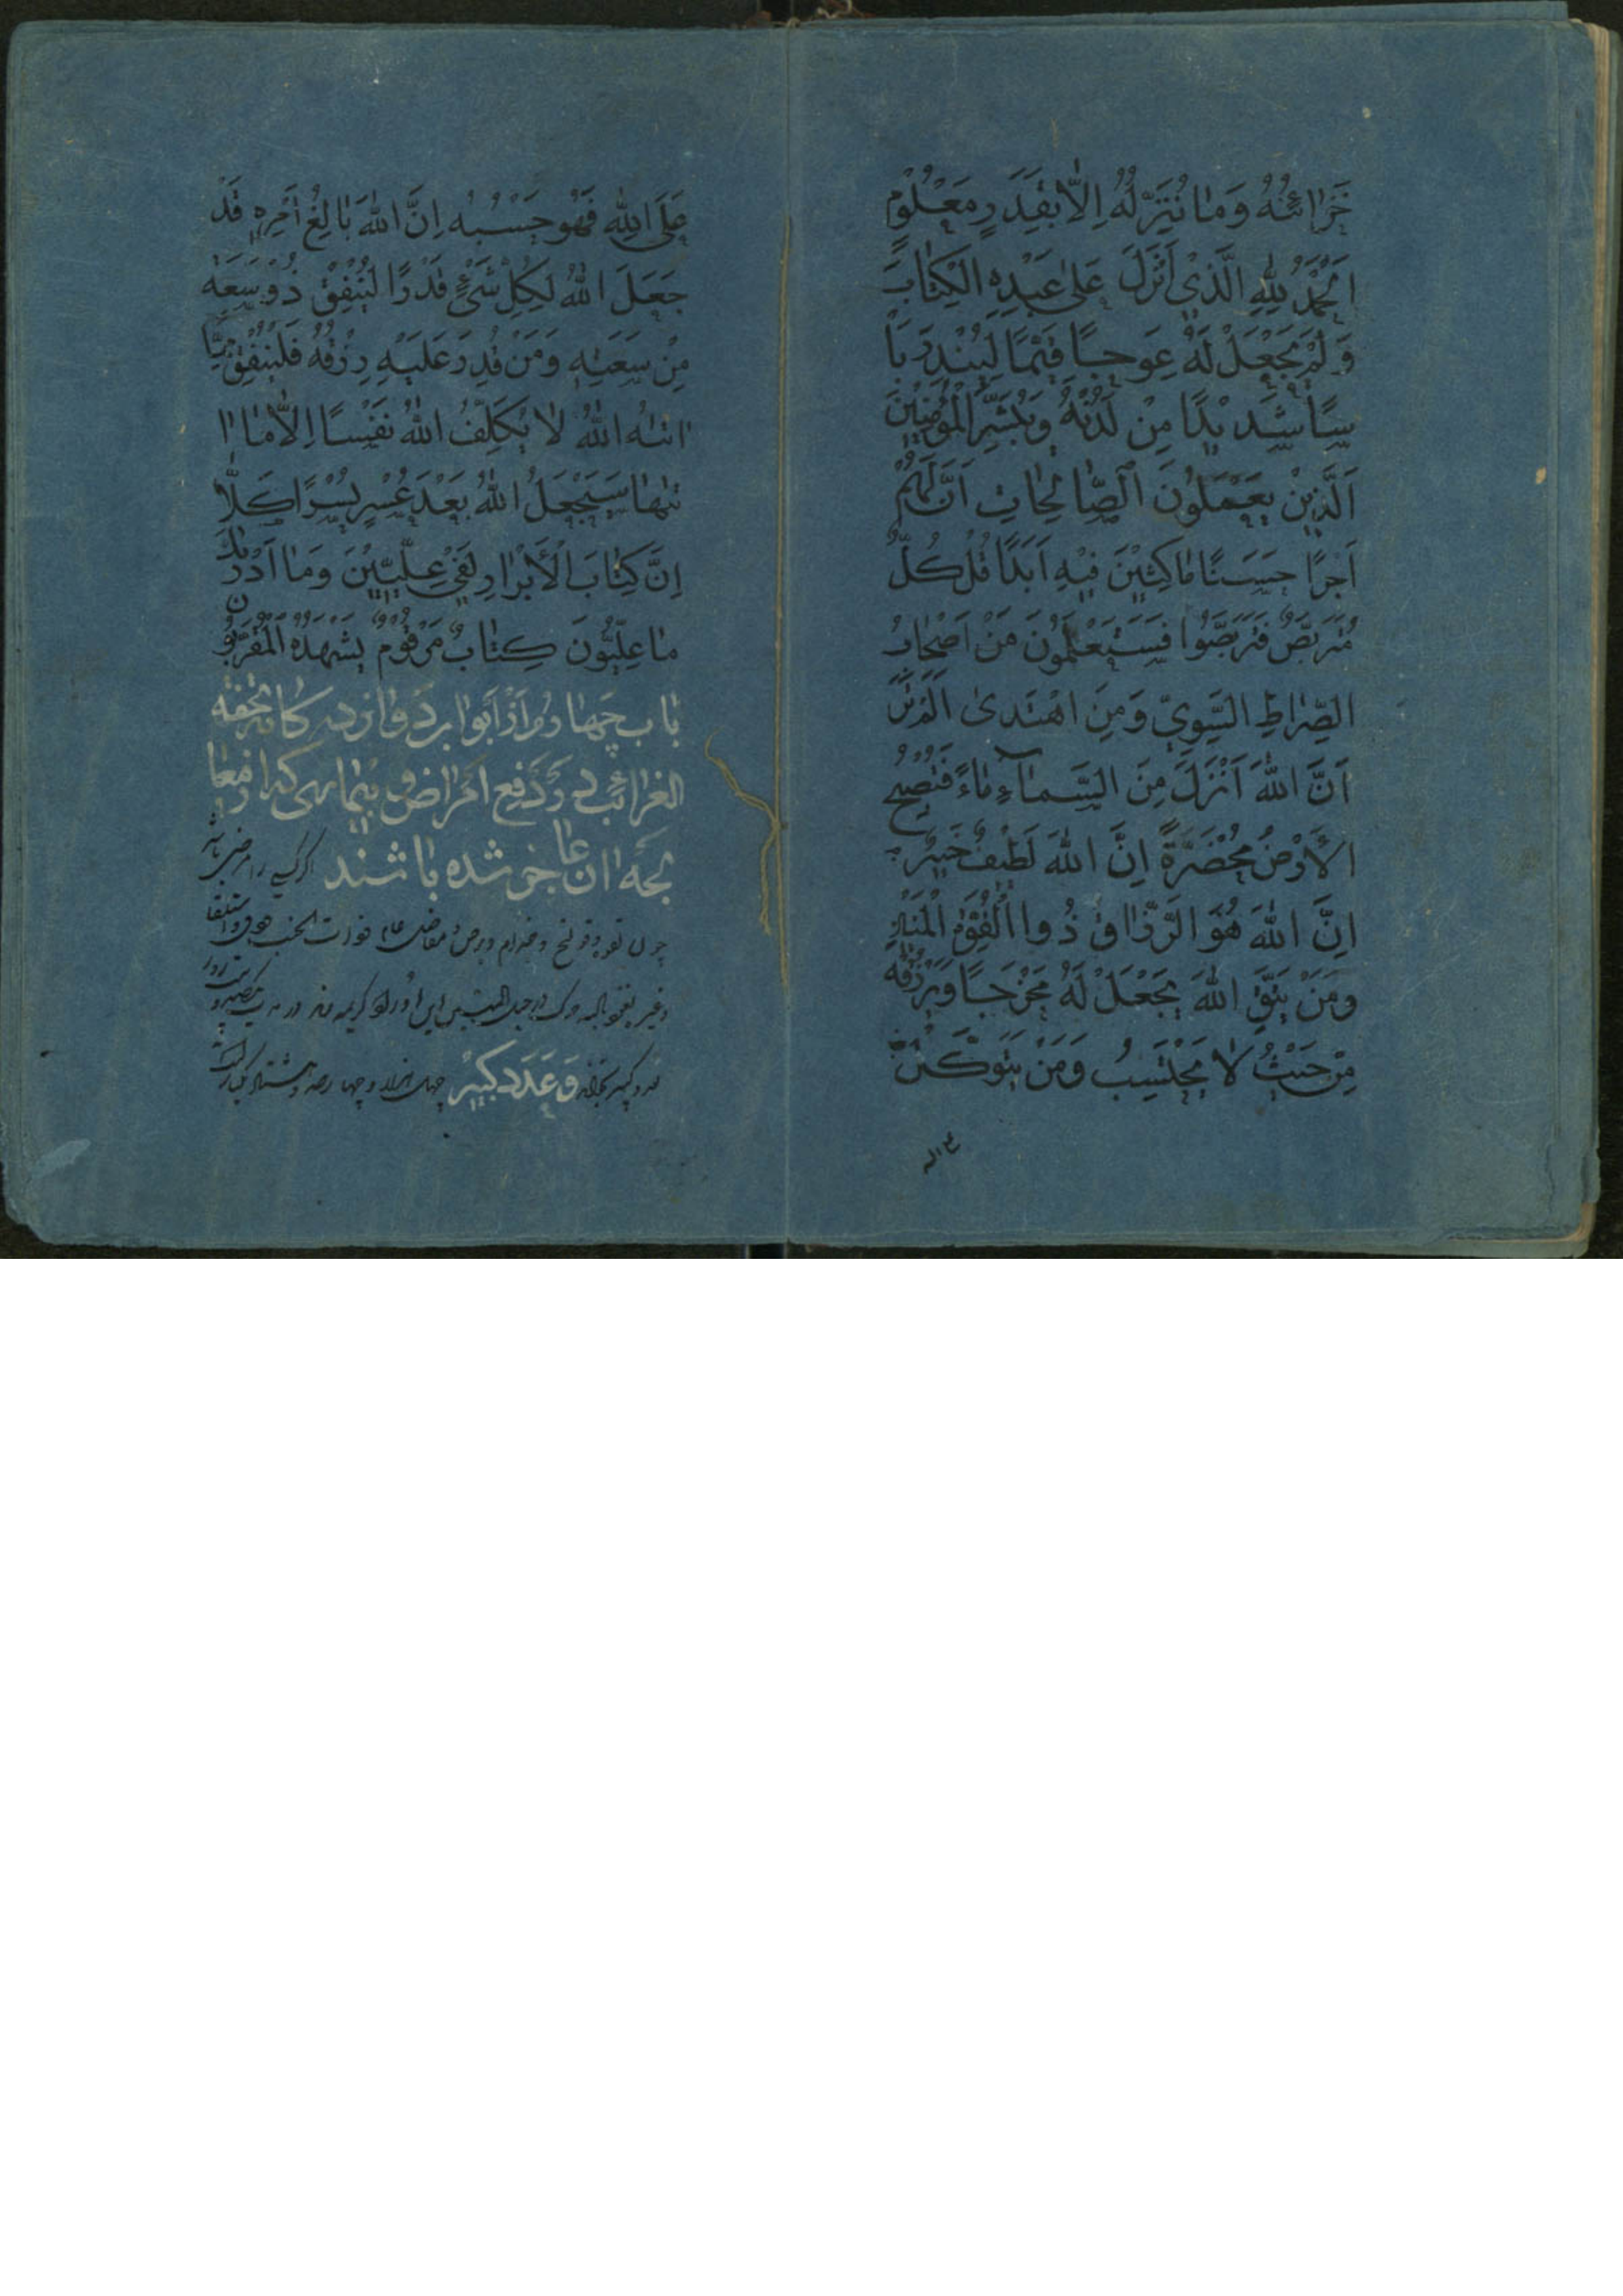 خَزَائِنُهُ وَمَا نُنَزِّلُهُ اِلَّا بِقَدَرٍ مَعْلُوْمٍ
اَلْحَمْدُ لِلّٰهِ الَّذِيْ اَنْزَلَ عَلٰى عَبْدِهِ الْكِتَابَ
وَلَمْ يَجْعَلْ لَهُ عِوَجًا قَيِّمًا لِيُنْذِرَ بَاْ
سًا شَدِيْدًا مِنْ لَدُنْهُ وَيُبَشِّرَ الْمُؤْمِنِيْنَ
اَلَّذِيْنَ يَعْمَلُوْنَ الصَّالِحَاتِ اَنَّ لَهُمْ
اَجْرًا حَسَنًا مَاكِثِيْنَ فِيْهِ اَبَدًا قُلْ كُلٌّ
مُتَرَبِّصٌ فَتَرَبَّصُوا فَسَتَعْلَمُوْنَ مَنْ اَصْحَابُ
الصِّرَاطِ السَّوِيِّ وَمَنِ اهْتَدٰى اَلَمْ تَرَ
اَنَّ اللّٰهَ اَنْزَلَ مِنَ السَّمَآءِ مَاءً فَتُصْبِحُ
الْاَرْضُ مُخْضَرَّةً اِنَّ اللّٰهَ لَطِيْفٌ خَبِيْرٌ
اِنَّ اللّٰهَ هُوَ الرَّزَّاقُ ذُوا الْقُوَّةِ الْمَتِيْنُ
وَمَنْ يَتَّقِ اللّٰهَ يَجْعَلْ لَهُ مَخْرَجًا وَيَرْزُقْهُ
مِنْ حَيْثُ لَا يَحْتَسِبُ وَمَنْ يَتَوَكَّلْ
عَلَى اللّٰهِ فَهُوَ حَسْبُهُ اِنَّ اللّٰهَ بَالِغُ اَمْرِهِ قَدْ
جَعَلَ اللّٰهُ لِكُلِّ شَيْءٍ قَدْرًا لِيُنْفِقْ ذُوْ سَعَةٍ
مِنْ سَعَتِهِ وَمَنْ قُدِرَ عَلَيْهِ رِزْقُهُ فَلْيُنْفِقْ مِمَّا
اٰتٰهُ اللّٰهُ لَا يُكَلِّفُ اللّٰهُ نَفْسًا اِلَّا مَا اٰ
تٰهَا سَيَجْعَلُ اللّٰهُ بَعْدَ عُسْرٍ يُسْرًا كَلَّا
اِنَّ كِتَابَ الْاَبْرَارِ لَفِيْ عِلِّيِّيْنَ وَمَا اَدْرٰيكَ
مَا عِلِّيُّوْنَ كِتَابٌ مَرْقُوْمٌ يَشْهَدُهُ الْمُقَرَّبُوْنَ
باب چهارم از ابواب دوازده كانه تحفة
الغرائب در دفع امراض و بیماریی که اطبا
بجه ان عاجز شده باشند اگر کسی را مرضی باشد
چون لقوه و قولنج و جذام و برص و
و غیر
وَعَدَد كَبِيْر چهل هزار و چهارصد و هشتاد